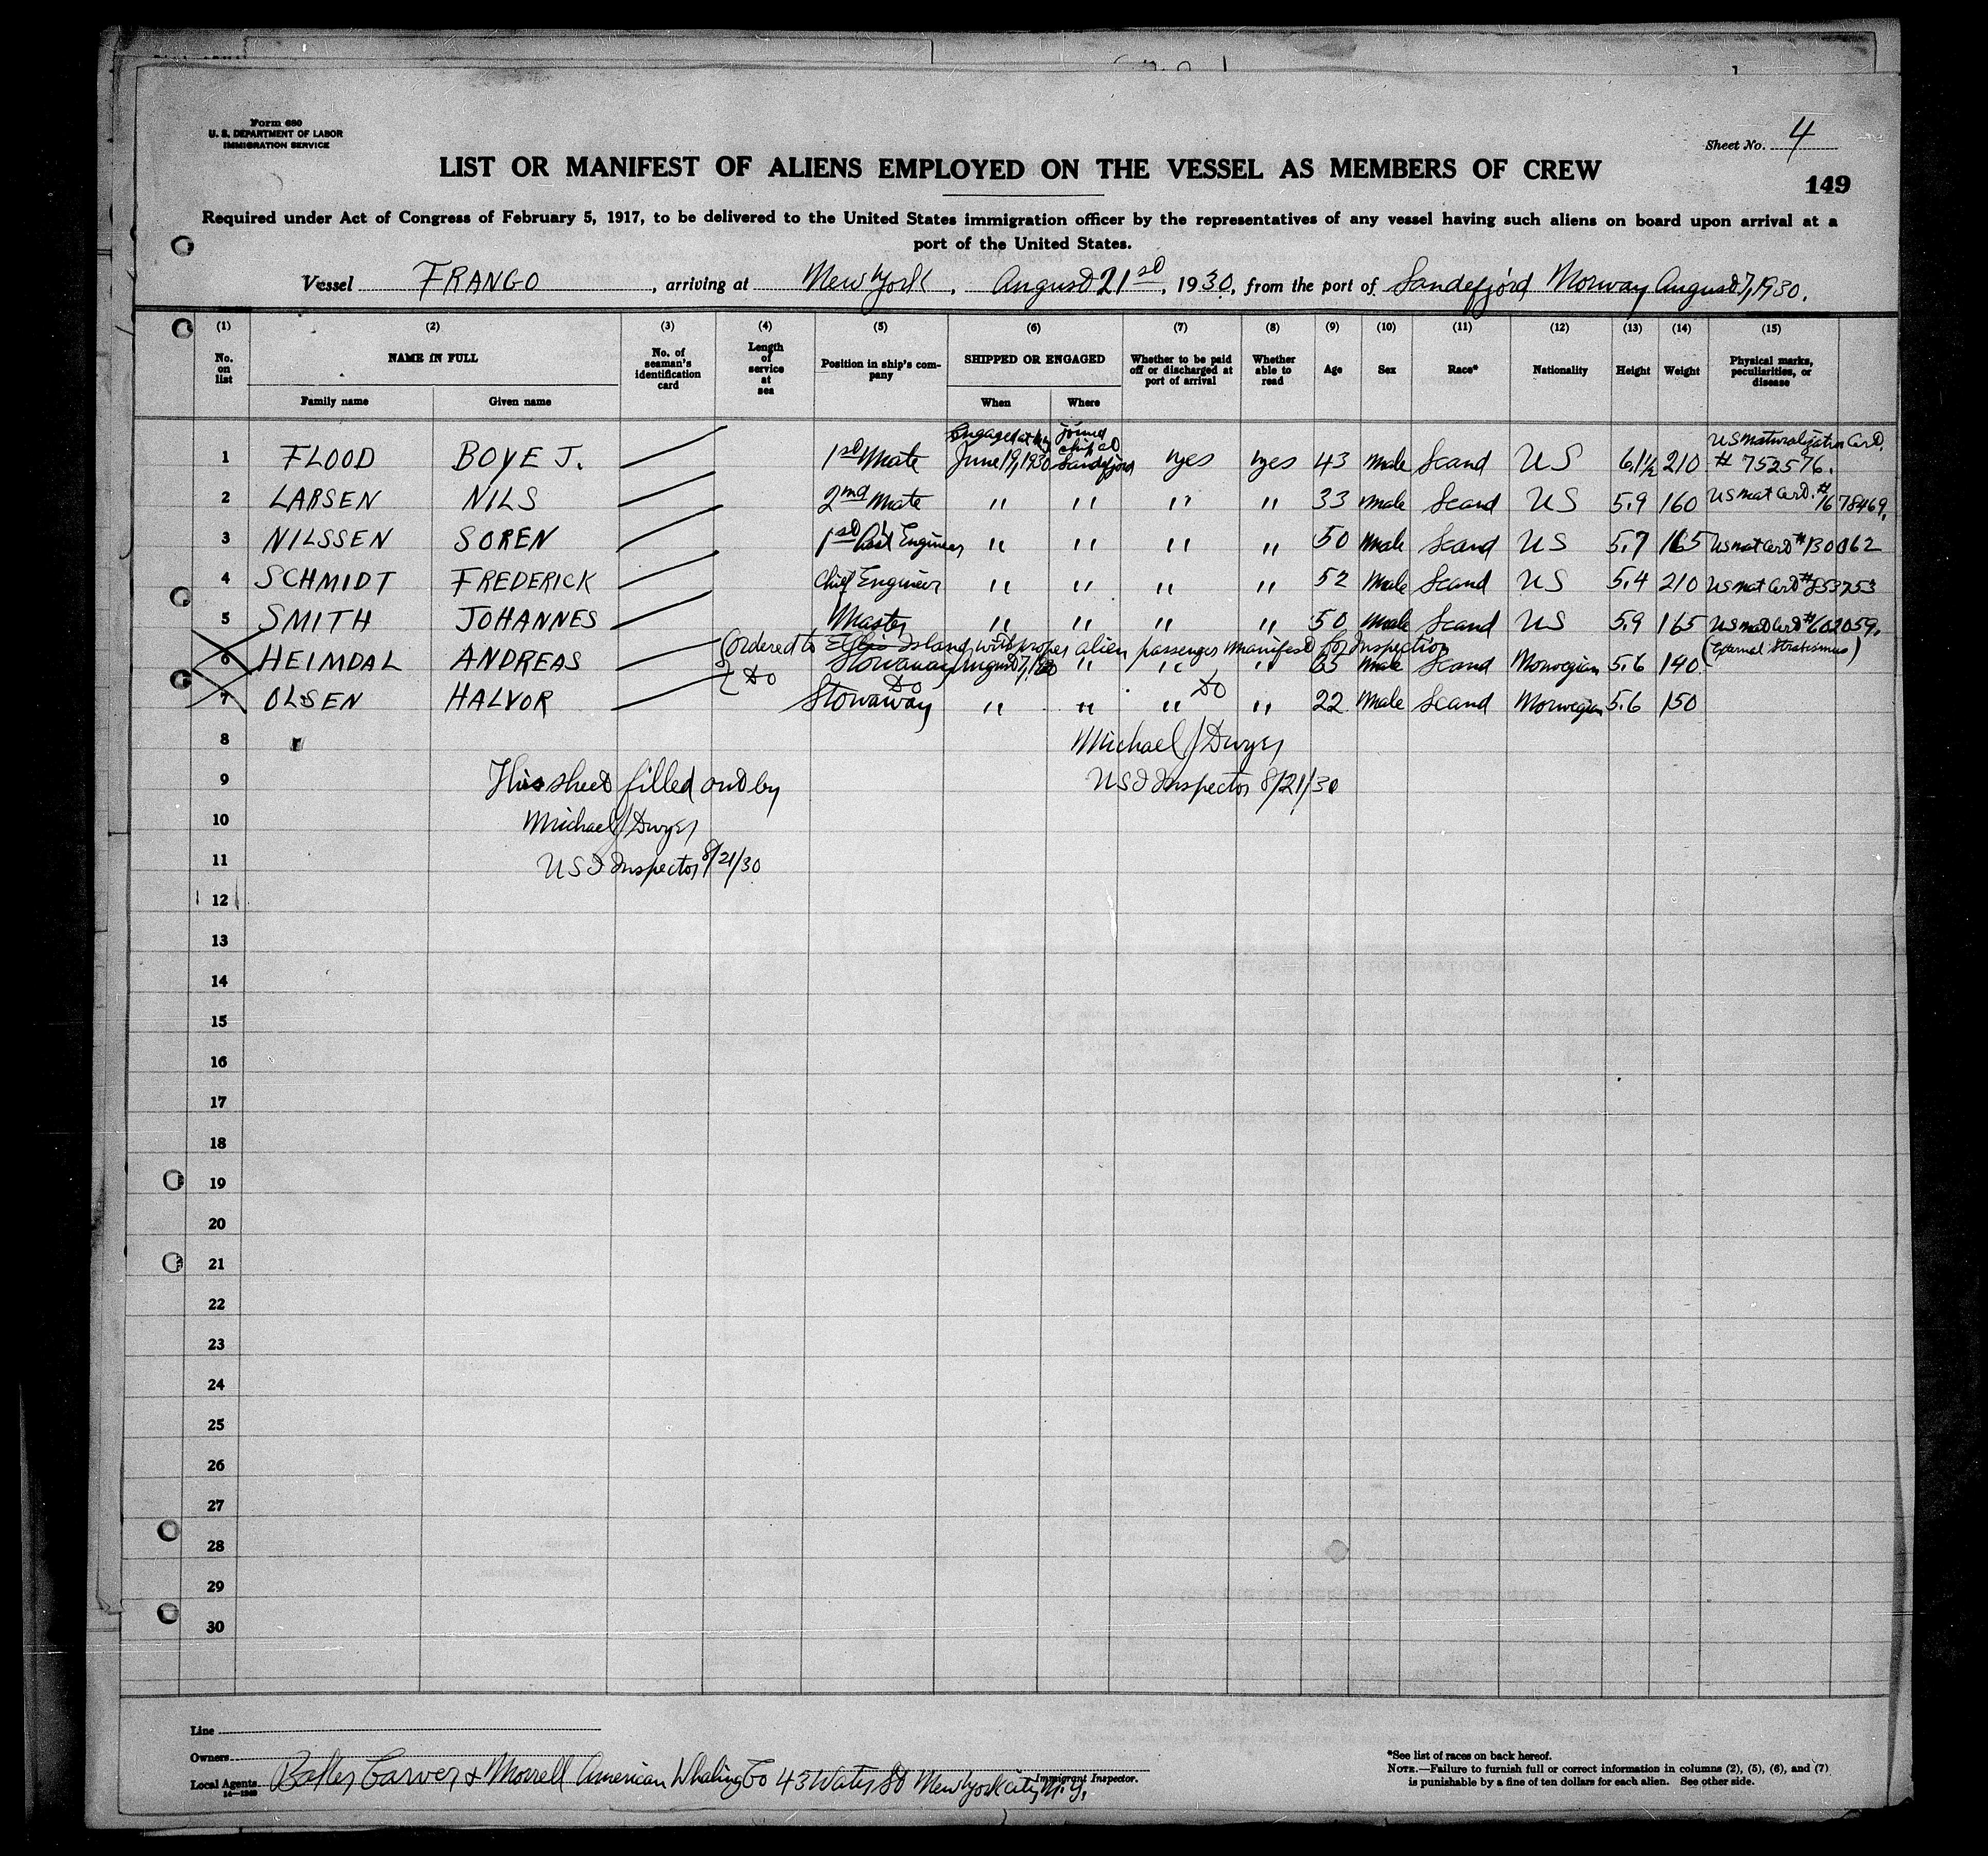 Form 680
U. S. DEPARTMENT OF LABOR
IMMIGRATION SERVICE
Sheet No. 4
LIST OR MANIFEST OF ALIENS EMPLOYED ON THE VESSEL AS MEMBERS OF CREW
149
Required under Act of Congress of February 5, 1917, to be delivered to the United States immigration officer by the representatives of any vessel having such aliens on board upon arrival at a
port of the United States.
Vessel FRANGO, arriving at New York, August 21st, 1930, from the port of Sandefjord Norway August 7, 1930.
(1) (2) (3) (4) (5) (6) (7) (8) (9) (10) (11) (12) (13) (14) (15)
No. on list NAME IN FULL No. of seaman's identification card Length of service at sea Position in ship's company SHIPPED OR ENGAGED Whether to be paid off or discharged at port of arrival Whether able to read Age Sex Race* Nationality Height Weight Physical marks, peculiarities, or disease
Family name Given name When Where
1 FLOOD BOYE J. 1st Mate Engaged at NY June 19, 1930 joined ship at Sandefjord yes yes 43 male Scand US 6.1½ 210 US naturalization Cert. # 752576.
2 LARSEN NILS 2nd Mate " " " " 33 male Scand US 5.9 160 US nat Cert. # 1678469.
3 NILSSEN SOREN 1st Asst Engineer " " " " 50 male Scand US 5.7 165 US nat Cert #
4 SCHMIDT FREDERICK Chief Engineer " " " " 52 male Scand US 5.4 210 US nat Cert #
5 SMITH JOHANNES Master " " " " 50 male Scand US 5.9 165 US nat Cert # 602059.
(Ordered to Ellis Island with proper alien passenger manifest for Inspection
6 HEIMDAL ANDREAS Stowaway August 7, 1930 " " " male Scand Norwegian 5.6 140 (External Strabismus)
Do Do Do
7 OLSEN HALVOR Stowaway " " " " 22 male Scand Norwegian 5.6 150
8 Michael J Dwyer
9 This sheet filled out by USI Inspector 8/21/30
10 Michael J Dwyer
11 USI Inspector 8/21/30
12
13
14
15
16
17
18
19
20
21
22
23
24
25
26
27
28
29
30
Line
Owners
Local Agents Carver & Morrell American Whaling Co 43 Water St New York city N.Y.
Immigrant Inspector.
*See list of races on back hereof.
NOTE.—Failure to furnish full or correct information in columns (2), (5), (6), and (7)
is punishable by a fine of ten dollars for each alien. See other side.